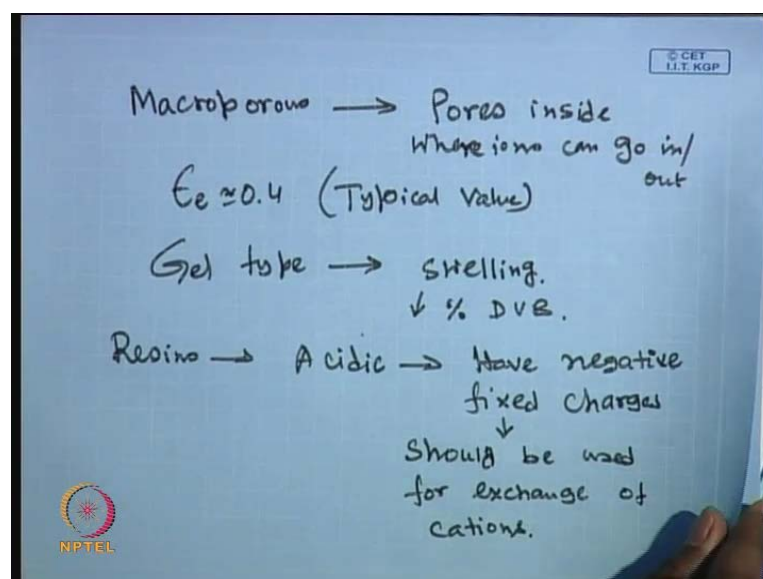 © CET
I.I.T. KGP
Macroporous → Pores inside
Where ions can go in/
out
Єe ≃ 0.4 (Typical Value)
Gel type → swelling.
↓ % DVB.
Resins → Acidic → Have negative
fixed charges
↓
Should be used
for exchange of
cations.
NPTEL